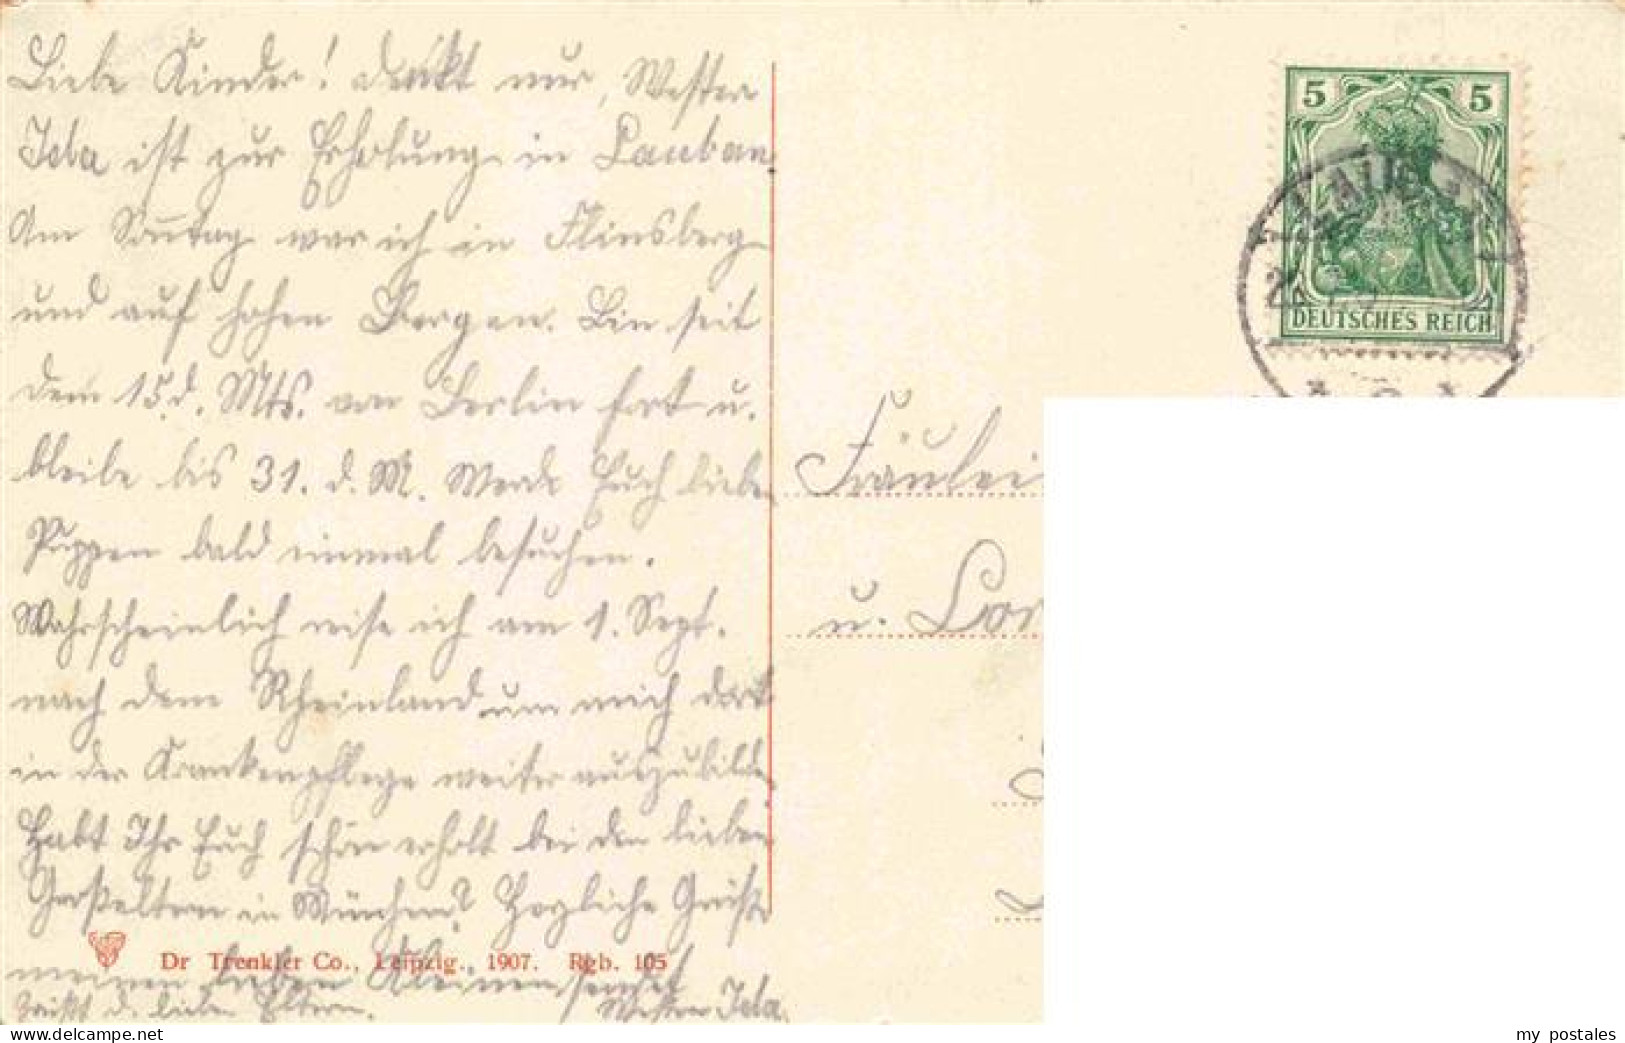 Liebe Kinder! denkt nur, Schwester
Ida ist zur Erholung in Lauban
Am Sonntag war ich in Flinsberg
und auf hohen Bergen. Bin seit
dem 15. d. Mts. von Berlin fort u.
bleibe bis 31. d. M. Werde Euch liebe
Puppen bald einmal besuchen.
Wahrscheinlich reise ich am 1. Sept.
nach dem Rheinland um mich dort
in der Krankenpflege weiter auszubilde
Habt Ihr Euch schön erholt bei den lieben
Großeltern in München? Herzliche Grüße
meinen lieben Kleinen sendet
Schwester Ida.
Grüßt d. lieben Eltern.
Dr Trenkler Co., Leipzig., 1907. Rgb. 105
5 5
DEUTSCHES REICH
Fräulei
u. Lor
my postales
www.delcampe.net